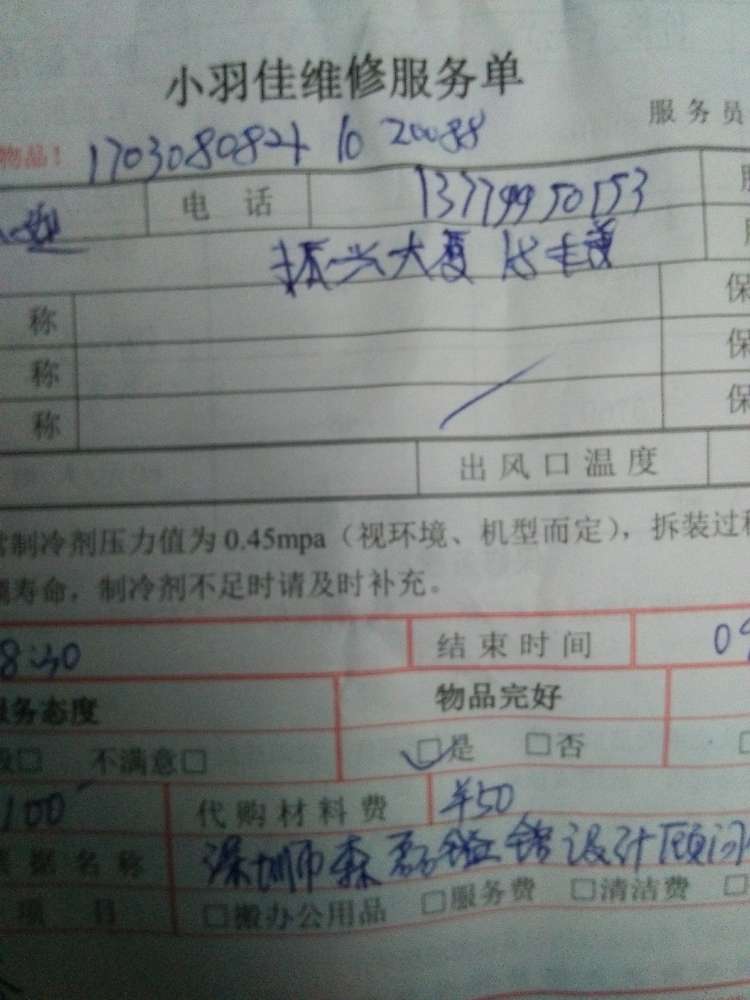 小羽佳维修服务单
服务员
物品！ 1703080824 10 20088
电话 13779950153
振兴大厦
称 保
称 保
称 保
出风口温度
制冷剂压力值为0.45mpa（视环境、机型而定），拆装过
寿命，制冷剂不足时请及时补充。
8:30 结束时间 09
服务态度 物品完好
□ 不满意□ □是 □否
100 代购材料费 ¥50
票据名称 深圳市森磊镒铭设计顾问
项目 □搬办公用品 □服务费 □清洁费